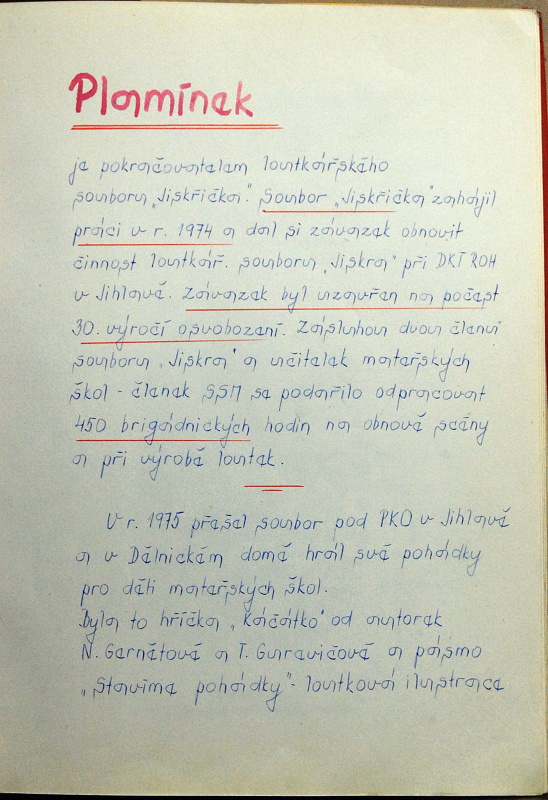 Plamínek
je pokračovatelem loutkářského
souboru „Jiskřička". Soubor „Jiskřička" zahájil
práci v r. 1974 a dal si závazek obnovit
činnost loutkář. souboru „Jiskra" při DKT ROH
v Jihlavě. Závazek byl uzavřen na počest
30. výročí osvobození. Zásluhou dvou členů
souboru „Jiskra" a učitelek mateřských
škol - členek SSM se podařilo odpracovat
450 brigádnických hodin na obnově scény
a při výrobě loutek.
V r. 1975 přešel soubor pod PKO v Jihlavě
a v Dělnickém domě hrál své pohádky
pro děti mateřských škol.
Byla to hříčka „Káčátko" od autorek
N. Gernětové a T. Gurevičové a pásmo
„Stavíme pohádky" - loutková ilustrace